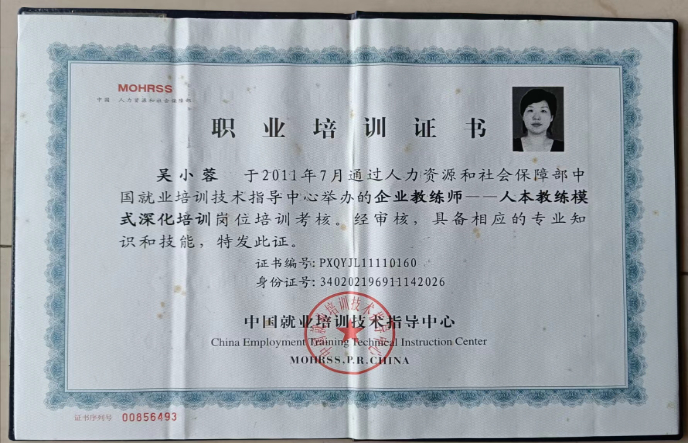 MOHRSS
中国 人力资源和社会保障部
职业培训证书
吴小蓉 于2011年7月通过人力资源和社会保障部中
国就业培训技术指导中心举办的企业教练师——人本教练模
式深化培训岗位培训考核。经审核，具备相应的专业知
识和技能，特发此证。
证书编号: PXQYJL11110160
身份证号: 340202196911142026
中国就业培训技术指导中心
China Employment Training Technical Instruction Center
MOHRSS.P.R.CHINA
证书序列号 00856493